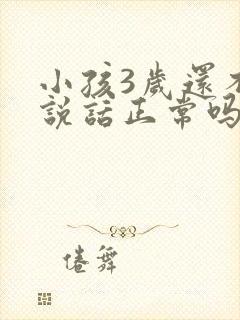 小孩3歲還不
說話正常嗎
倦舞